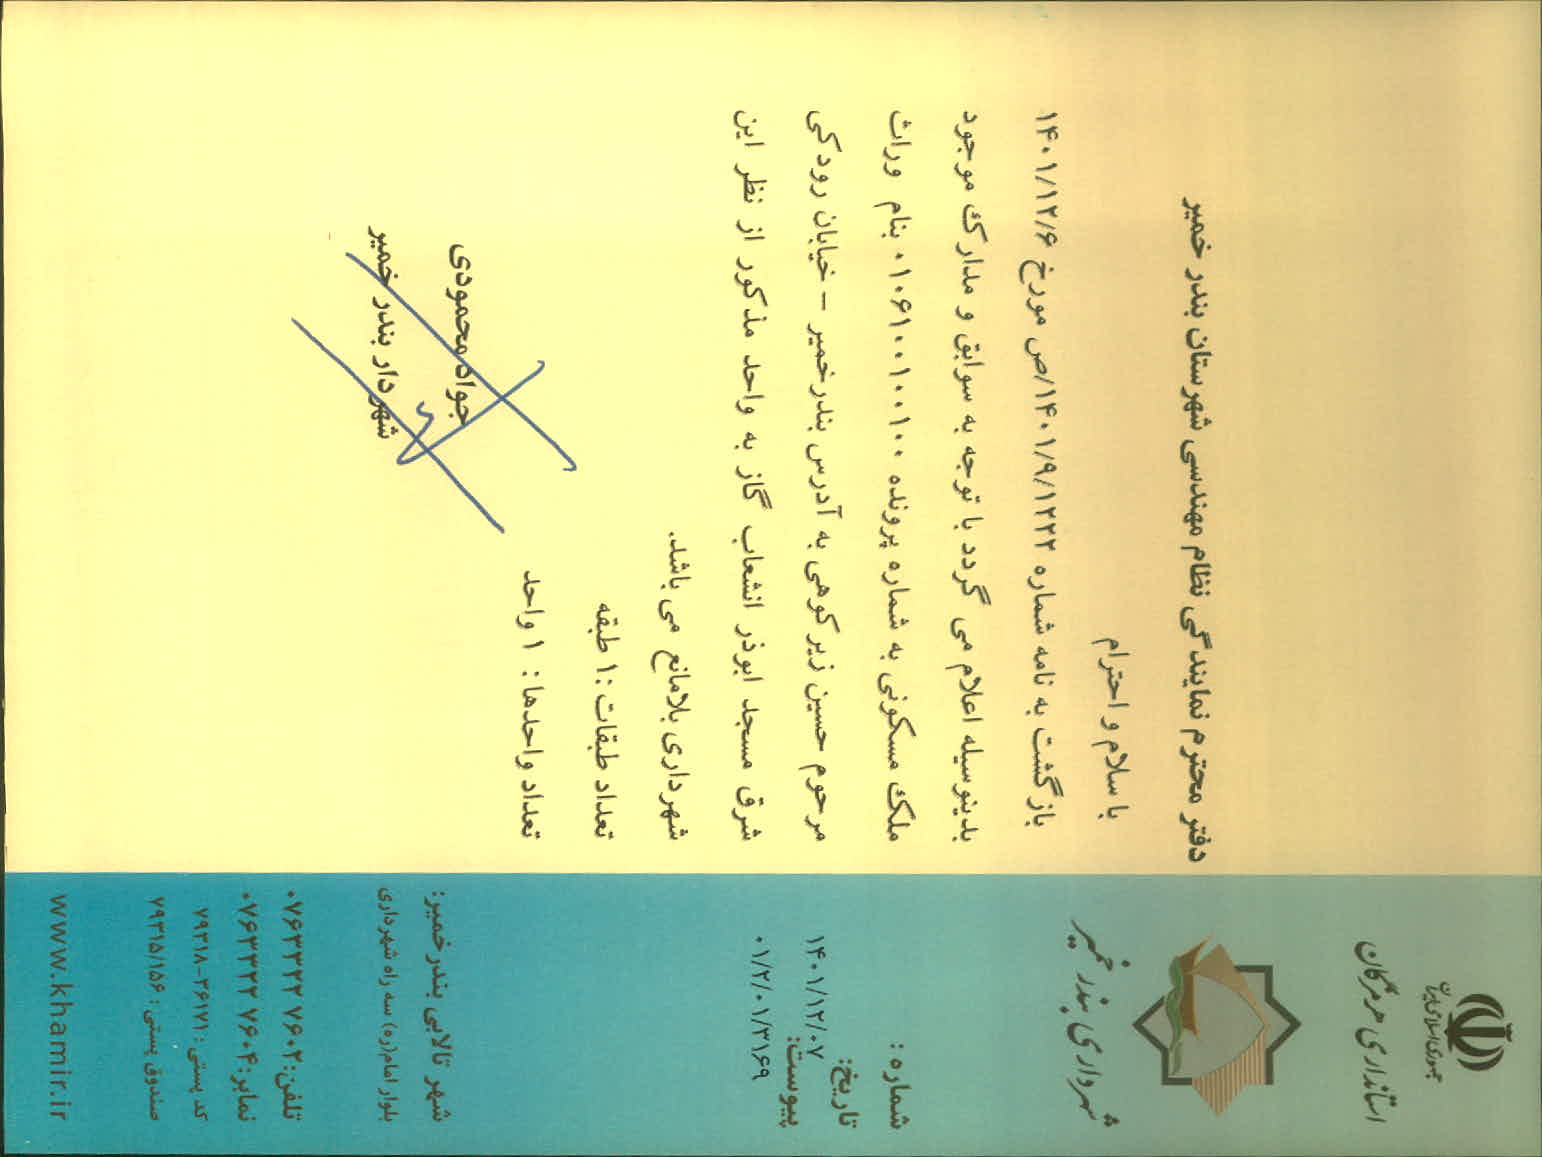 جمهوری اسلامی ایران
استانداری هرمزگان
شهرداری بندر خمیر
شماره :
تاریخ:
۱۴۰۱/۱۲/۰۷
پیوست:
۰۱/۲/۰۱/۳۱۶۹
شهر تالابی بندر خمیر:
بلوار امام(ره) سه راه شهرداری
تلفن: ۰۷۶۳۳۲۲ ۷۶۰۲
نمابر: ۰۷۶۳۳۲۲ ۷۶۰۴
کد پستی : ۳۶۱۷۱-۷۹۳۱۸
صندوق پستی : ۷۹۳۱۵/۱۵۶
www.khamir.ir
دفتر محترم نمایندگی نظام مهندسی شهرستان بندر خمیر
با سلام و احترام
بازگشت به نامه شماره ۱۴۰۱/۹/۱۲۲۲/ص مورخ ۱۴۰۱/۱۲/۶
بدینوسیله اعلام می گردد با توجه به سوابق و مدارک موجود
ملک مسکونی به شماره پرونده ۰۱۰۶۱۰۰۱۰۰۱۰۰ بنام وراث
مرحوم حسین زیرکوهی به آدرس بندرخمیر – خیابان رودکی
شرق مسجد ابوذر انشعاب گاز به واحد مذکور از نظر این
شهرداری بلامانع می باشد.
تعداد طبقات :۱ طبقه
تعداد واحدها : ۱ واحد
جواد محمودی
شهردار بندر خمیر